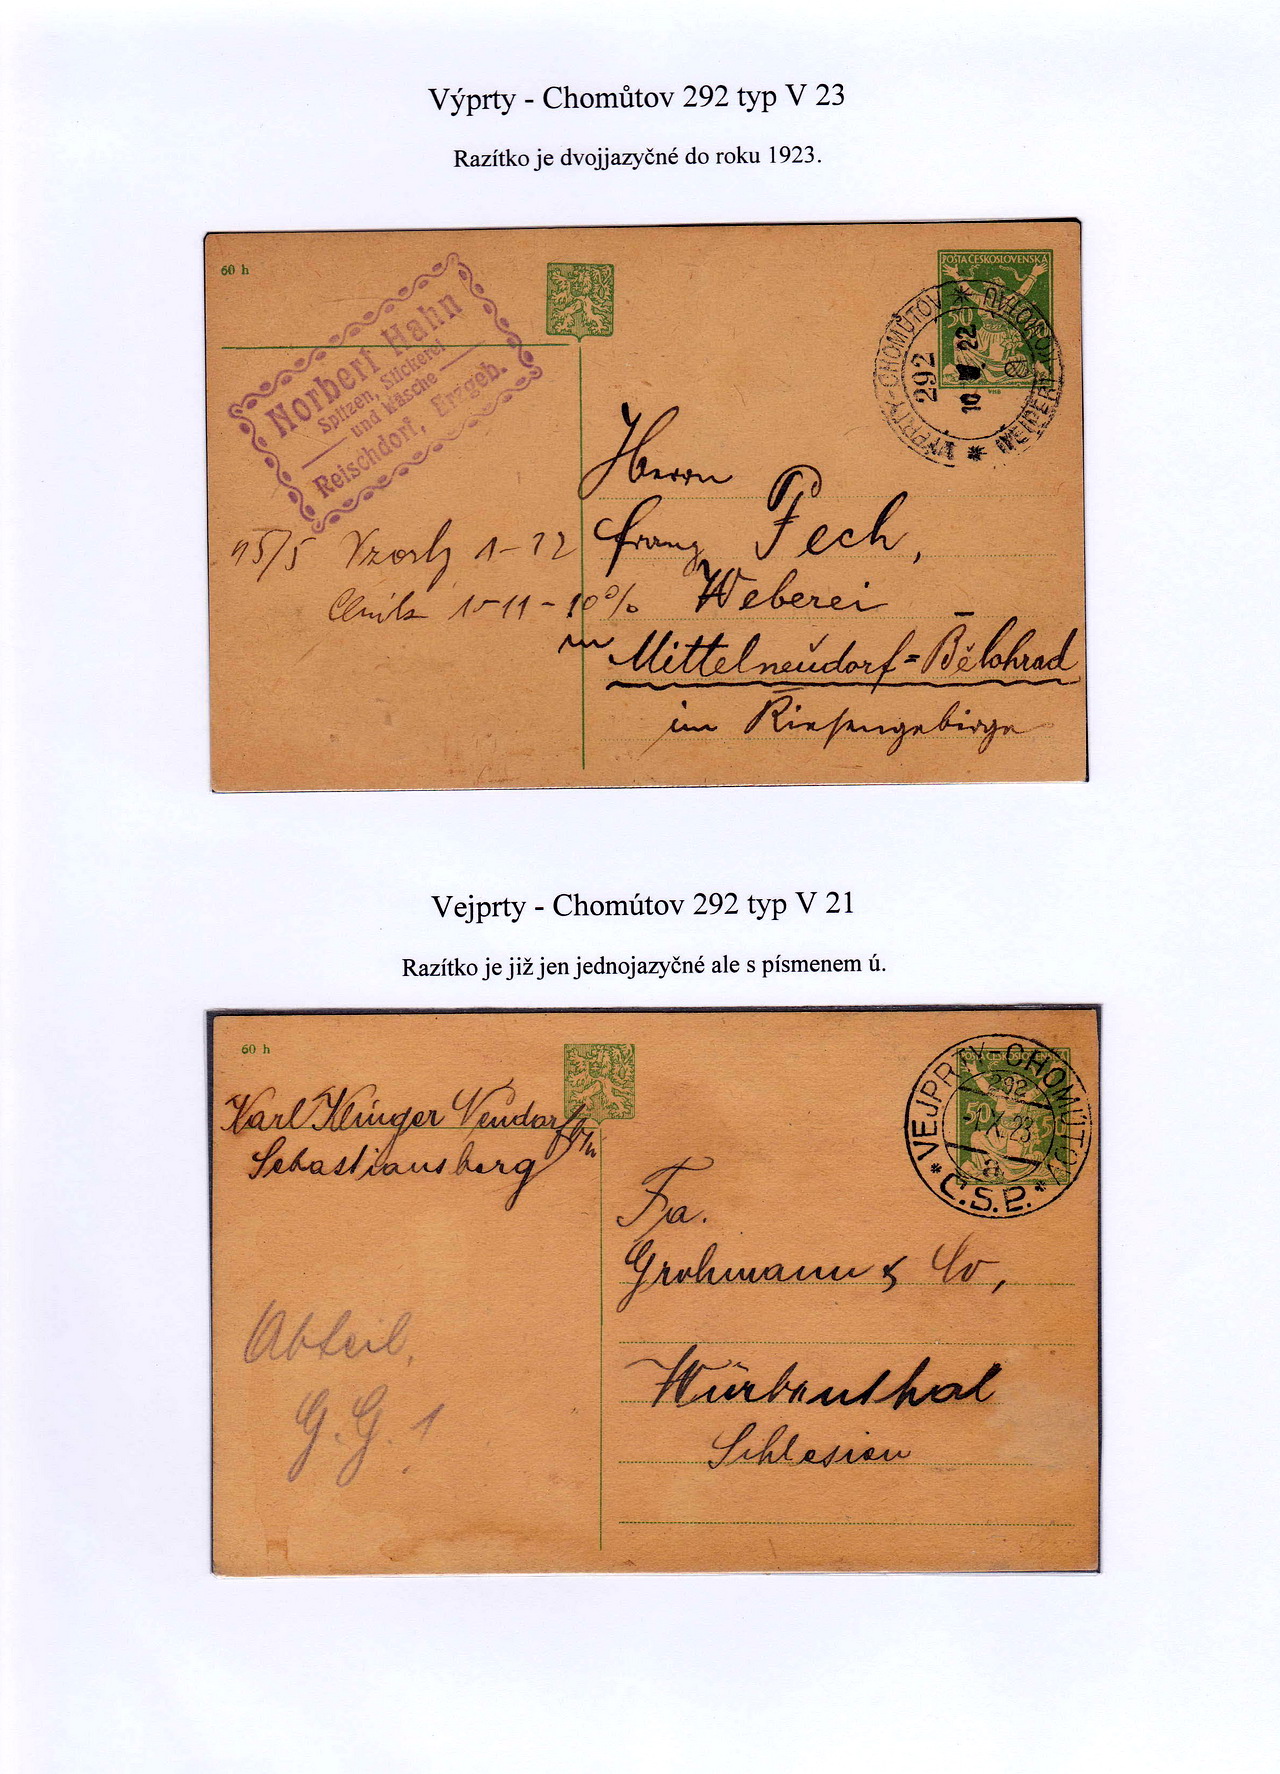 Výprty - Chomůtov 292 typ V 23
Razítko je dvojjazyčné do roku 1923.
60 h
Norbert Hahn
Spitzen, Stickerei
und Wäsche
Reischdorf, Erzgeb.
POŠTA ČESKOSLOVENSKÁ
50
VÝPRTY-CHOMŮTOV
292
10. 22
WEIPERT
Herrn
Franz Fech,
15/5 Vzorky 1-22
Weberei
15 11 - 10%
in
Mittelneudorf = Bělohrad
im Riesengebirge
Vejprty - Chomútov 292 typ V 21
Razítko je již jen jednojazyčné ale s písmenem ú.
60 h
POŠTA ČESKOSLOVENSKÁ
50
VEJPRTY CHOMÚTOV
292
X. 23
a
* Č.S.P. *
Karl Klinger Neudorf b/n
Sebastiansberg
Fa.
Grohmann & Co,
Abteil.
G. G. 1
Würbenthal
Schlesien